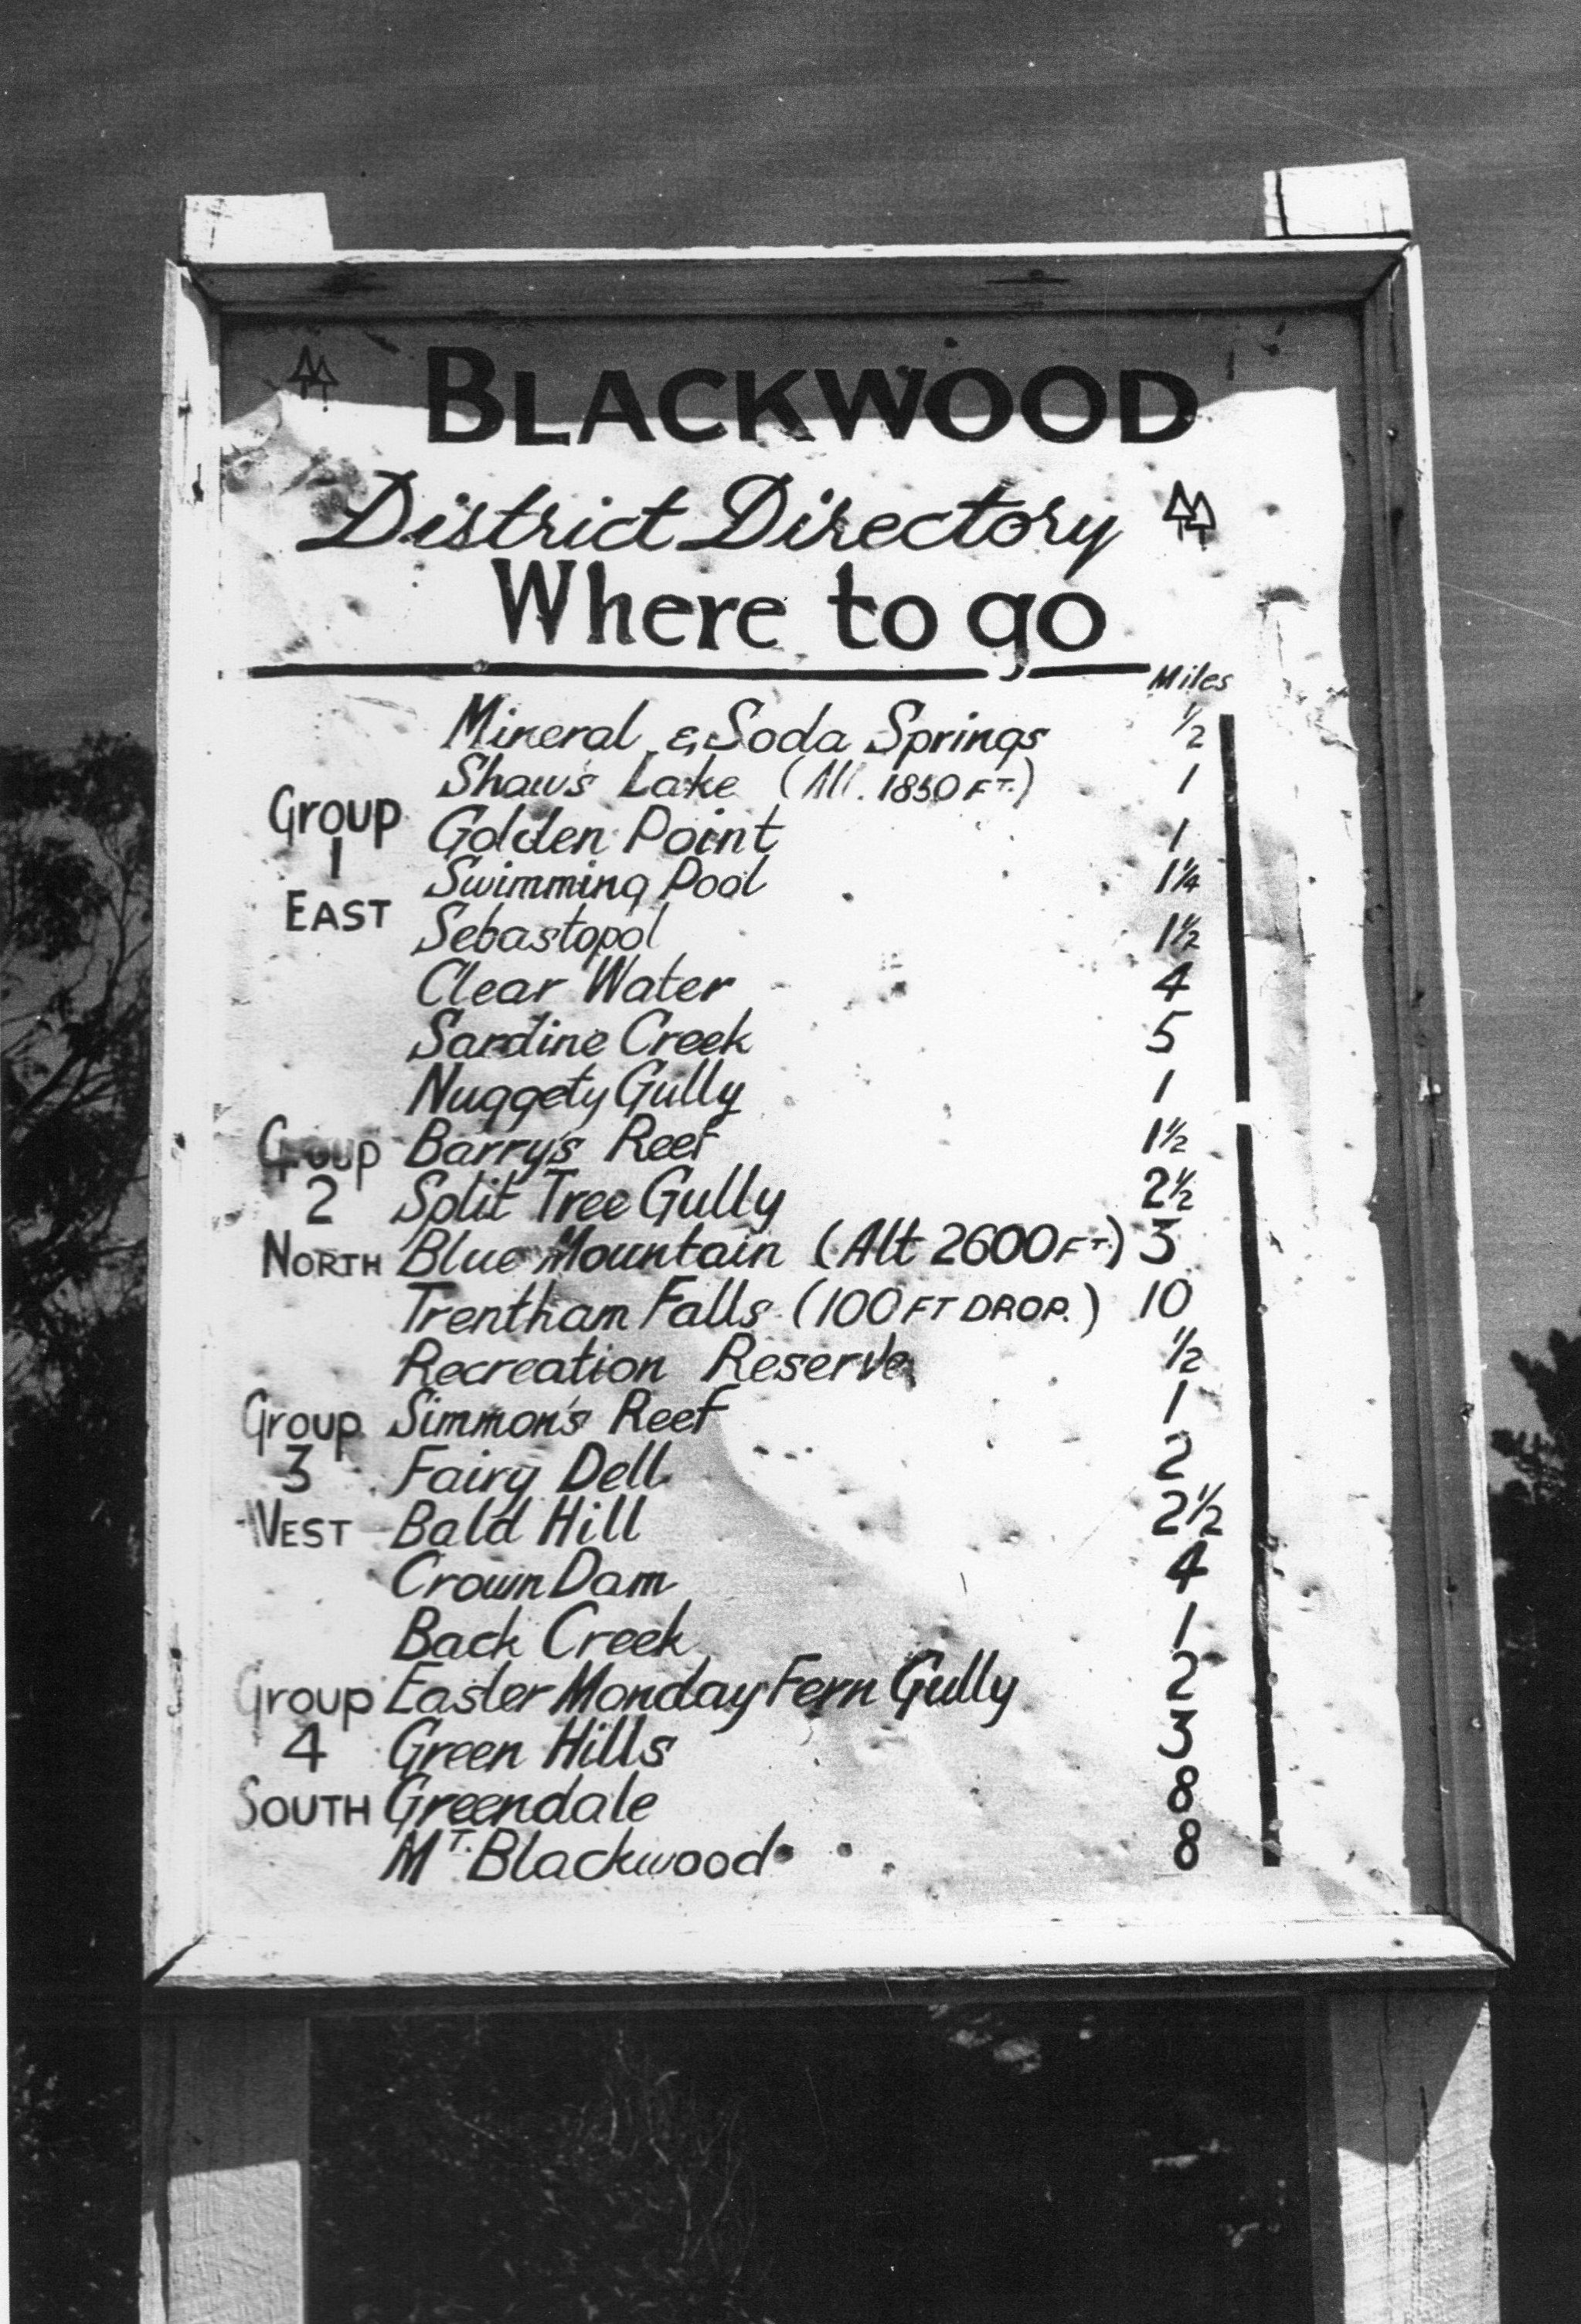 BLACKWOOD
District Directory
Where to go
Miles
Mineral & Soda Springs ½
Shaw's Lake (Alt. 1850 FT.) 1
Group
Golden Point 1
1
Swimming Pool 1¼
EAST
Sebastopol 1½
Clear Water 4
Sardine Creek 5
Nuggety Gully 1
Group Barry's Reef 1½
2 Split Tree Gully 2½
NORTH Blue Mountain (Alt 2600 FT.) 3
Trentham Falls (100 FT DROP.) 10
Recreation Reserve ½
Group Simmon's Reef 1
3 Fairy Dell 2
WEST Bald Hill 2½
Crown Dam 4
Back Creek 1
Group Easter Monday Fern Gully 2
4 Green Hills 3
SOUTH Greendale 8
MT. Blackwood 8